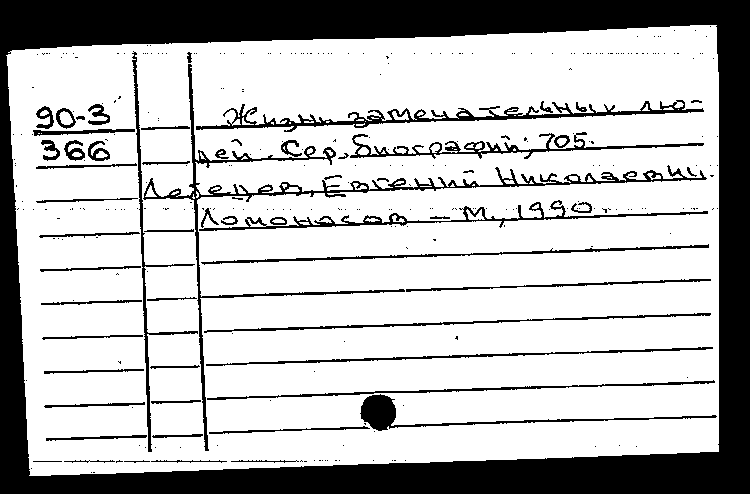 90-3 Жизнь замечательных лю-
366 дей. Сер. биографий; 705.
Лебедев, Евгений Николаевич.
Ломоносов – М., 1990.